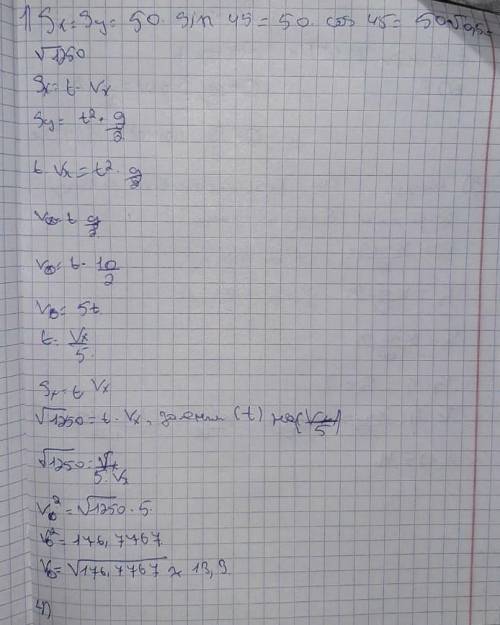 1) Sx = Sy = 50 · sin 45 = 50 · cos 45 = 50√0,5 =
√1250
Sx = t · Vx
Sy = t² · g/2
t · Vx = t² · g/2
V₀ = t g/2
V₀ = t · 10/2
V₀ = 5t
t = Vx/5
Sx = t Vx
√1250 = t · Vx, заменим (t) на (Vx/5)
√1250 = Vx/5 · Vx
V₀² = √1250 · 5
V₀² = 176,7767
V₀ = √176,7767 ≈ 13,3